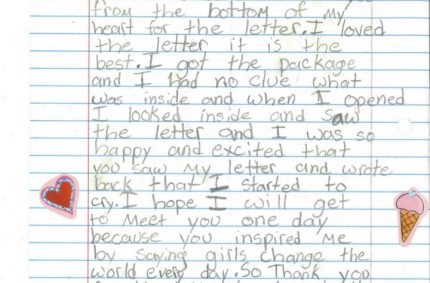 from the bottom of my
heart for the letter. I loved
the letter it is the
best. I got the package
and I had no clue what
was inside and when I opened
I looked inside and saw
the letter and I was so
happy and excited that
you saw my letter and wrote
back that I started to
cry. I hope I will get
to meet you one day
because you inspired me
by saying girls change the
world every day. So Thank you